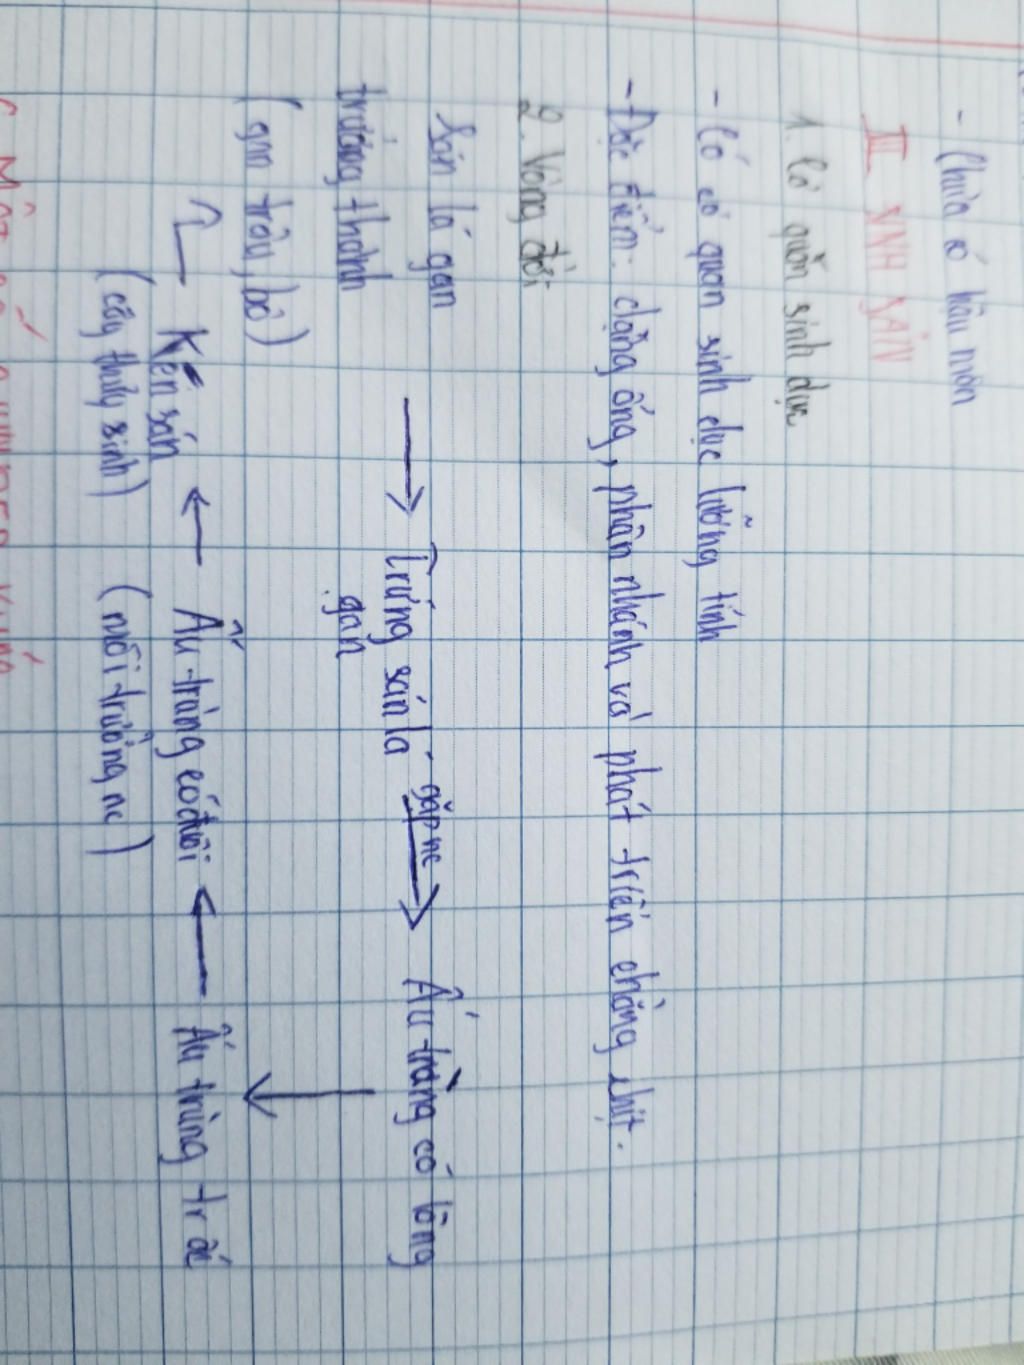 - Chưa có hậu môn
III SINH SẢN
1. Cơ quan sinh dục
- Có cơ quan sinh dục lưỡng tính
- Đặc điểm: dạng ống, phân nhánh và phát triển chằng chịt.
2. Vòng đời
Sán lá gan
trưởng thành
(gan trâu, bò)
Trứng sán lá
gan
gặp nc
Ấu trùng có lông
Ấu trùng ốc
Ấu trùng có đuôi
(môi trường nc)
Kén sán
(cây thủy sinh)